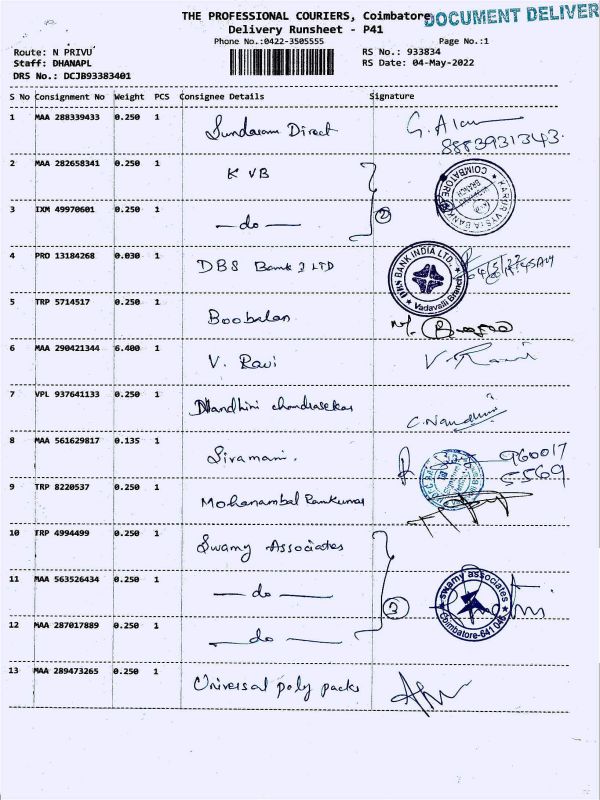 THE PROFESSIONAL COURIERS, Coimbatore
DOCUMENT DELIVER
Delivery Runsheet - P41
Phone No.:0422-3505555
Page No.:1
Route: N PRIVU
RS No.: 933834
Staff: DHANAPL
RS Date: 04-May-2022
DRS No.: DCJB93383401
S No Consignment No Weight PCS Consignee Details Signature
1 MAA 288339433 0.250 1 Sundaram Direct G. Alan
8883931343.
2 MAA 282658341 0.250 1 K VB
KARUR VYSYA BANK COIMBATORE BRANCH
3 IXM 49970601 0.250 1 — do — 2
4 PRO 13184268 0.030 1 DBS Bank I LTD
BANK INDIA LTD. Vadavalli Branch
5 TRP 5714517 0.250 1 Boobalan
6 MAA 290421344 6.400 1 V. Ravi V. Ravi
7 VPL 937641133 0.250 1 Nandhini chandrasekar C. Nandhini
8 MAA 561629817 0.135 1 Sivamani. 960017
5569
9 TRP 8220537 0.250 1 Mohanambal Ramkumar
10 TRP 4994499 0.250 1 Swamy Associates
11 MAA 563526434 0.250 1 — do — 3
swamy associates Coimbatore-641 046
12 MAA 287017889 0.250 1 — do —
13 MAA 289473265 0.250 1 Universal poly packs